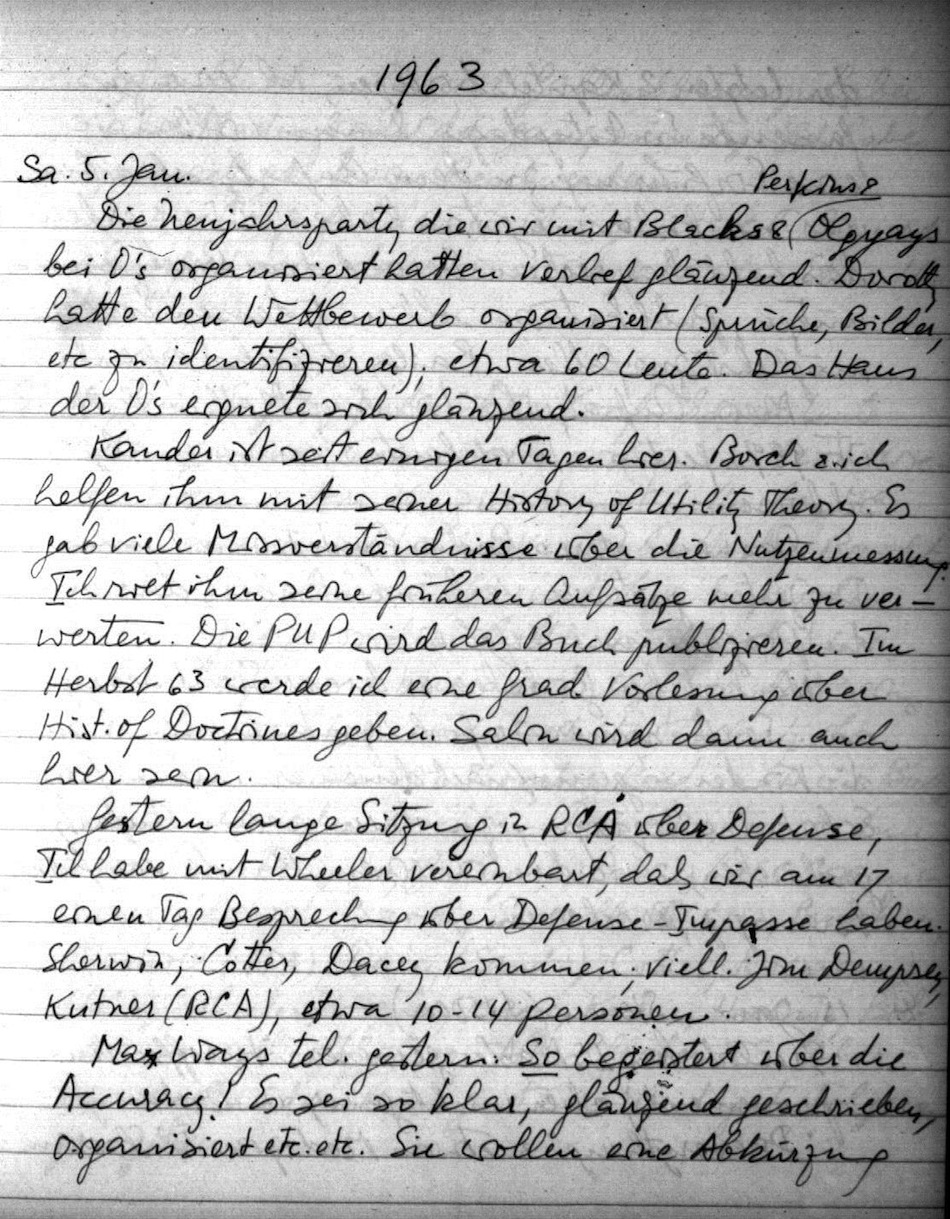 1963
Sa. 5. Jan.
Perkins &
Die Neujahrsparty die wir mit Blacks & (Olgyays
bei O's organisiert hatten verlief glänzend. Dorothy
hatte den Wettbewerb organisiert (Sprüche, Bilder,
etc zu identifizieren), etwa 60 Leute. Das Haus
der O's eignete sich glänzend.
Kauder ist seit einigen Tagen hier. Borch & ich
helfen ihm mit seiner History of Utility Theory. Es
gab viele Missverständnisse über die Nutzenmessung
Ich riet ihm seine früheren Aufsätze mehr zu ver-
werten. Die PUP wird das Buch publizieren. Im
Herbst 63 werde ich eine grad Vorlesung über
Hist. of Doctrines geben. Salin wird dann auch
hier sein.
Gestern lange Sitzung in RCA über Defense,
Ich habe mit Wheeler vereinbart, daß wir am 17
einen Tag Besprechung über Defense-Impasse haben.
Sherwin, Cotter, Dacey kommen; viell. Jim Dempsey,
Kutner (RCA), etwa 10-14 Personen.
Max Ways tel. gestern: So begeistert über die
Accuracy! Es sei so klar, glänzend geschrieben,
organisiert etc. etc. Sie wollen eine Abkürzung